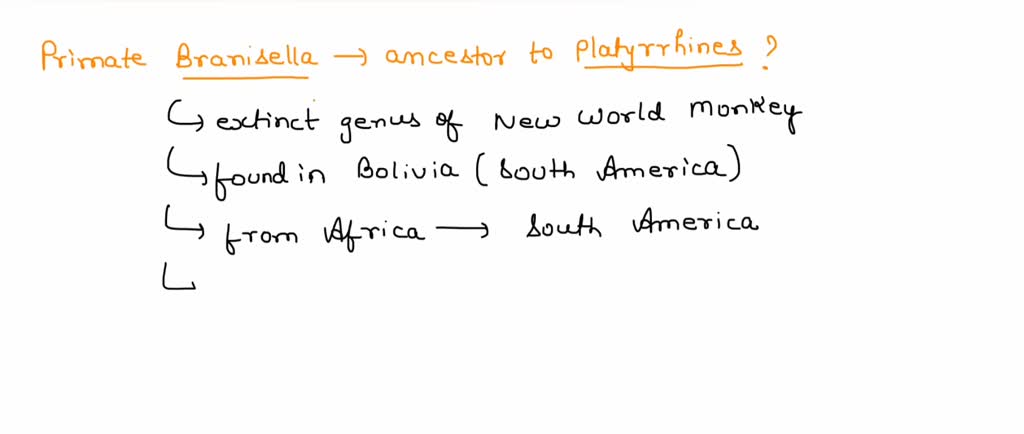 Primate Branisella → ancestor to Platyrrhines?
↳ extinct genus of New World Monkey
↳ found in Bolivia (South America)
↳ from Africa → South America